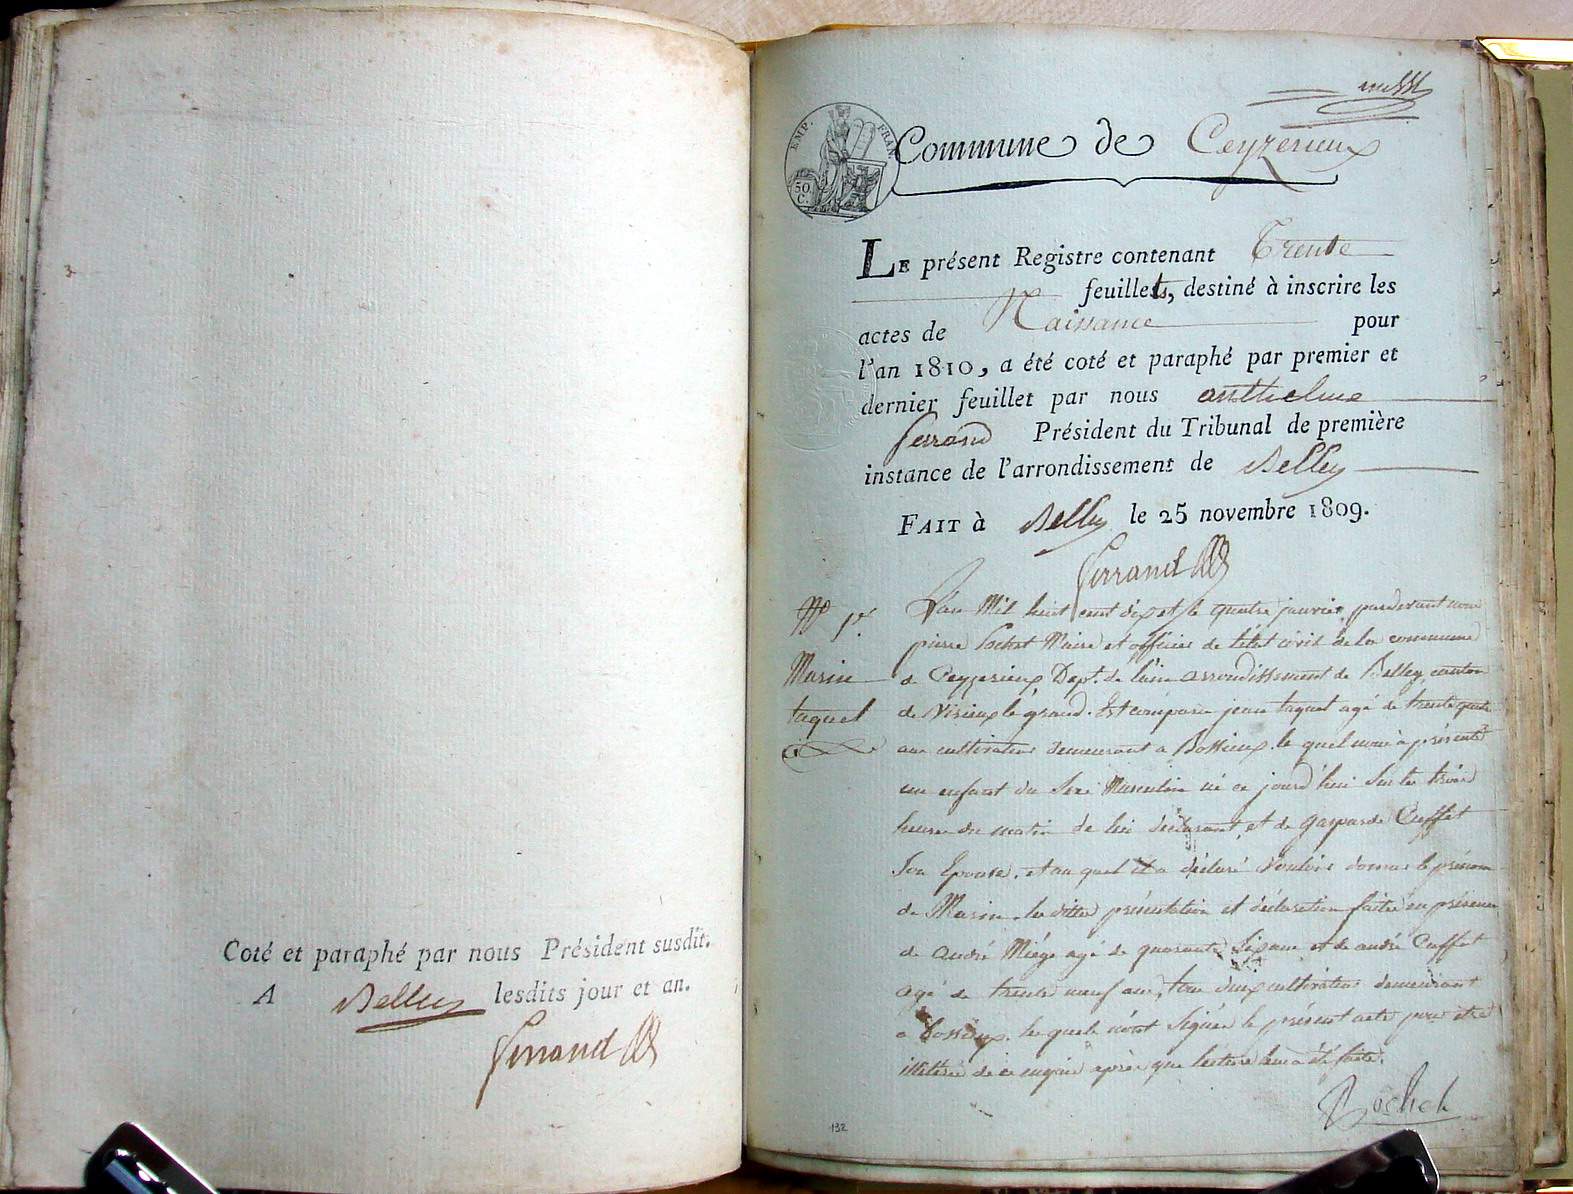 Coté et paraphé par nous Président susdit.
A Belley lesdits jour et an.
Ferrand
EMP. FRAN.
50 C.
Commune de Ceyzerieux
LE présent Registre contenant Trente
feuillets, destiné à inscrire les
actes de Naissance pour
l'an 1810, a été coté et paraphé par premier et
dernier feuillet par nous anthelme
ferrand Président du Tribunal de première
instance de l'arrondissement de Belley
FAIT à Belley le 25 novembre 1809.
Ferrand
N° 1er
Marin
taquet
L'an Mil huit cent dix et le quatre janvier pardevant nous
pierre Rochet Maire et officier de l'état civil de la commune
de Ceyzerieux Dept. de l'ain arrondissement de Belley canton
de Virieux le grand. Est comparu jean taquet agé de trente quatre
ans cultivateur demeurant a Bossieux. le quel nous à présenté
un enfant du Sexe Masculin né ce jourd'hui Sur les trois
heures du matin de lui déclarant et de gasparde Cuffet
Son Epouse. et au quel il a déclaré vouloir donner le prénom
de Marin. les dittes présentation et déclaration faites en présence
de andré Miége agé de quarante Six ans et de andré Cuffet
agé de trente neuf ans, tous deux cultivateurs demeurant
a Bossieux. les quels n'ont Signés le présent acte pour être
illitérés de ce enquis après que lecture leur a été faite.
Rochet
132